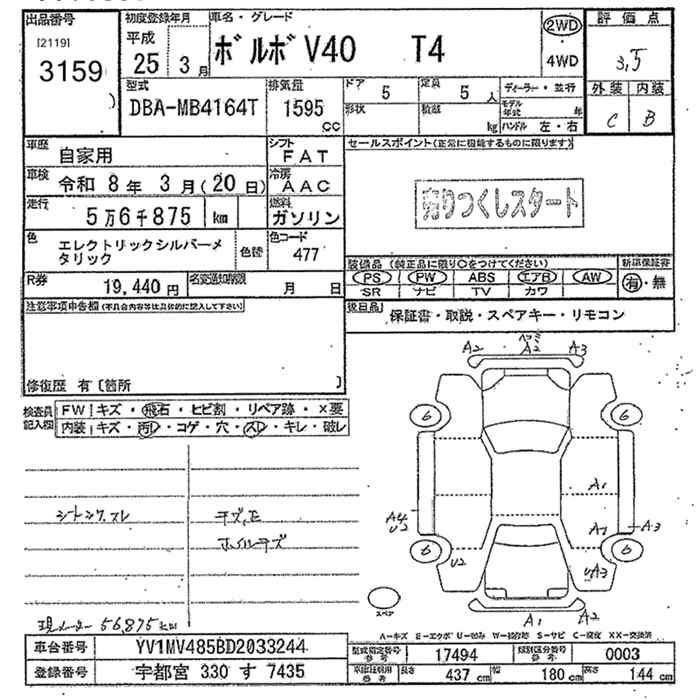 出品番号
[2119]
3159
初度登録年月
平成
25 3月
車名・グレード
ボルボV40 T4
2WD
4WD
評価点
3,5
外装 内装
C B
型式
DBA-MB4164T
排気量
1595
cc
ドア 5
定員 5 人
形状
積載
kg
ディーラー・並行
モデル年式 年
ハンドル 左・右
車歴 自家用
シフト FAT
車検 令和 8年 3月(20日)
冷房 AAC
走行 5万6千875 km
燃料 ガソリン
色
エレクトリックシルバーメ
タリック
色替
色コード
477
R券
19,440円
名変通知期限
月 日
セールスポイント(正常に機能するものに限ります)
売りつくしスタート
装備品 (純正品に限り○をつけてください)
PS PW ABS エアB AW
SR ナビ TV カワ
新車保証書
有・無
後日品
保証書・取説・スペアキー・リモコン
注意事項申告欄(不具合内容等は具体的に記入して下さい)
修復歴 有〔箇所 〕
検査員
記入欄
FW キズ・飛石・ヒビ割・リペア跡・×要
内装 キズ・汚レ・コゲ・穴・スレ・キレ・破レ
現メーター 56,875km
A2 A2 A3
6 6
A1
A4
U2
A1 A3
6 6
U2
A3
スペア
A1 A2
A-キズ E-エクボ U-凹み W-補修跡 S-サビ C-腐食 XX-交換済
車台番号 YV1MV485BD2033244
登録番号 宇都宮 330 す 7435
型式指定番号
17494
類別区分番号
0003
長さ 437 cm
幅 180 cm
高さ 144 cm